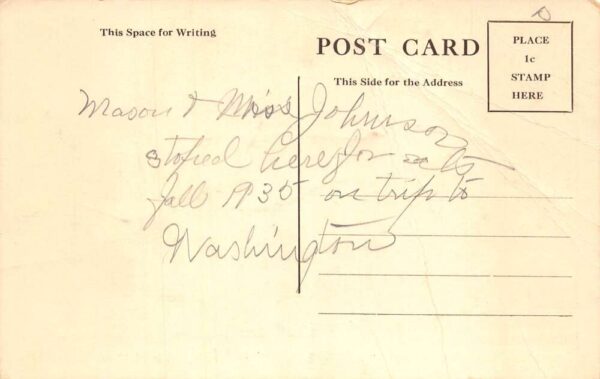 This Space for Writing
POST CARD
PLACE
1c
STAMP
HERE
This Side for the Address
Mason & Miss Johnson
stoped here for
fall 1935 on trip to
Washington